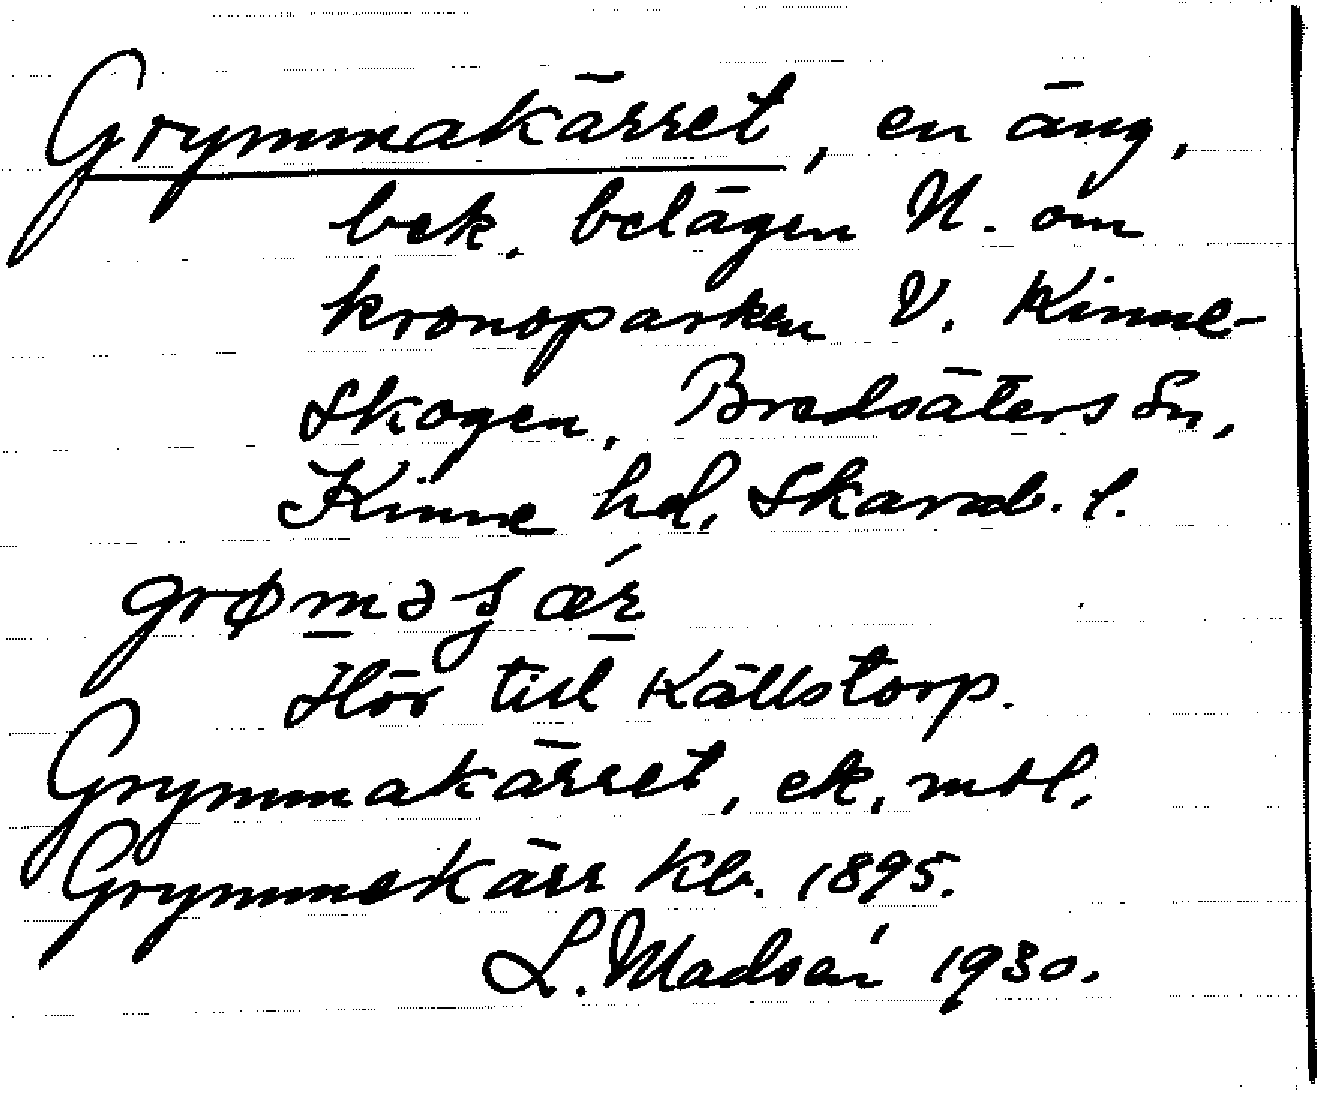 Grymmakärret, en äng,
bek. belägen N. om
kronoparken V. Kinne-
skogen, Bredsäters sn,
Kinne hd, Skarab. l.
Hör till Källstorp.
Grymmakärret, ek. mtl.
Grymmekärr Kb. 1895.
L. Madsén 1930.